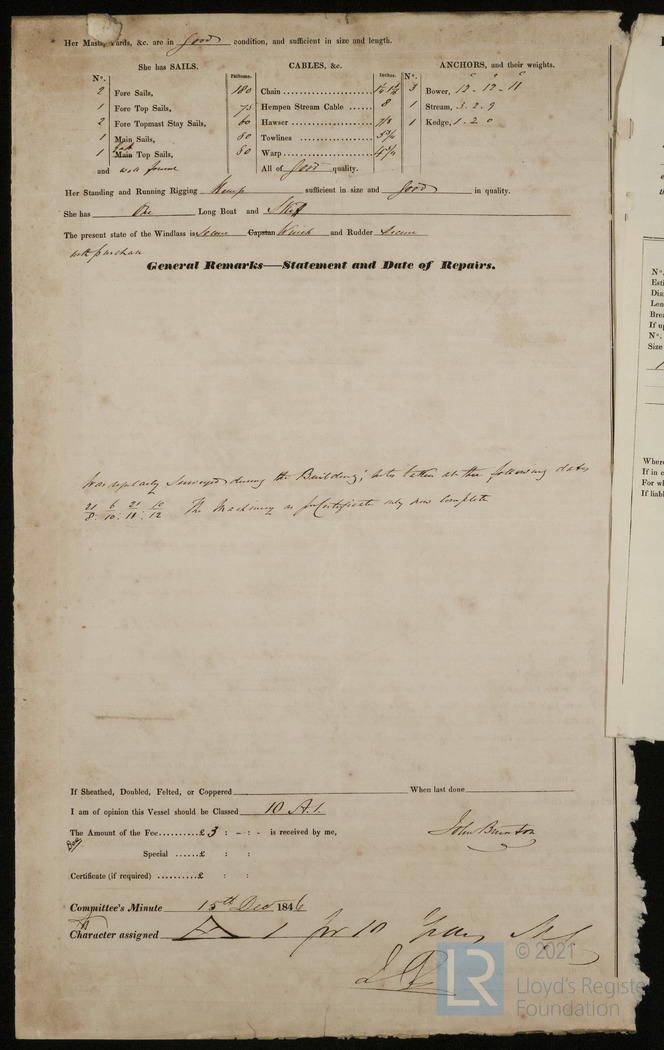 Her Masts, Yards, &c. are in good condition, and sufficient in size and length.
She has SAILS. Fathoms. CABLES, &c. Inches. ANCHORS, and their weights.
N°. N°.
2 Fore Sails, 180 Chain 3 Bower, 12 - 12 - 11
1 Fore Top Sails, 75 Hempen Stream Cable 8 1 Stream, 3. 2. 9
2 Fore Topmast Stay Sails, 60 Hawser 7/8 1 Kedge, 1 . 2 0
1 Main Sails, 80 Towlines
1 Main Top Sails, 80 Warp 4 3/4
and well found All of Good quality.
Her Standing and Running Rigging Hemp sufficient in size and good in quality.
She has One Long Boat and Skiff
The present state of the Windlass is Secure Capstan Winch and Rudder Secure
with purchase
General Remarks—Statement and Date of Repairs.
Was regularly Surveyed during the Building; notes taken at the following dates
21/8 : 6/10 : 21/11 : 10/12 The Machinery as pr Certificate only now Complete
If Sheathed, Doubled, Felted, or Coppered When last done
I am of opinion this Vessel should be Classed 10 A.1.
The Amount of the Fee £ 3 : - : - is received by me, John Brunton
Special £ : :
Certificate (if required) £ : :
Committee's Minute 15th Dec 1846
Character assigned A 1 for 10 Years
N°.
Esti
Dia
Len
Brea
If up
N°.
Size
Where
If in c
For wh
If liabl
LR
© 2021
Lloyd's Registe
Foundation